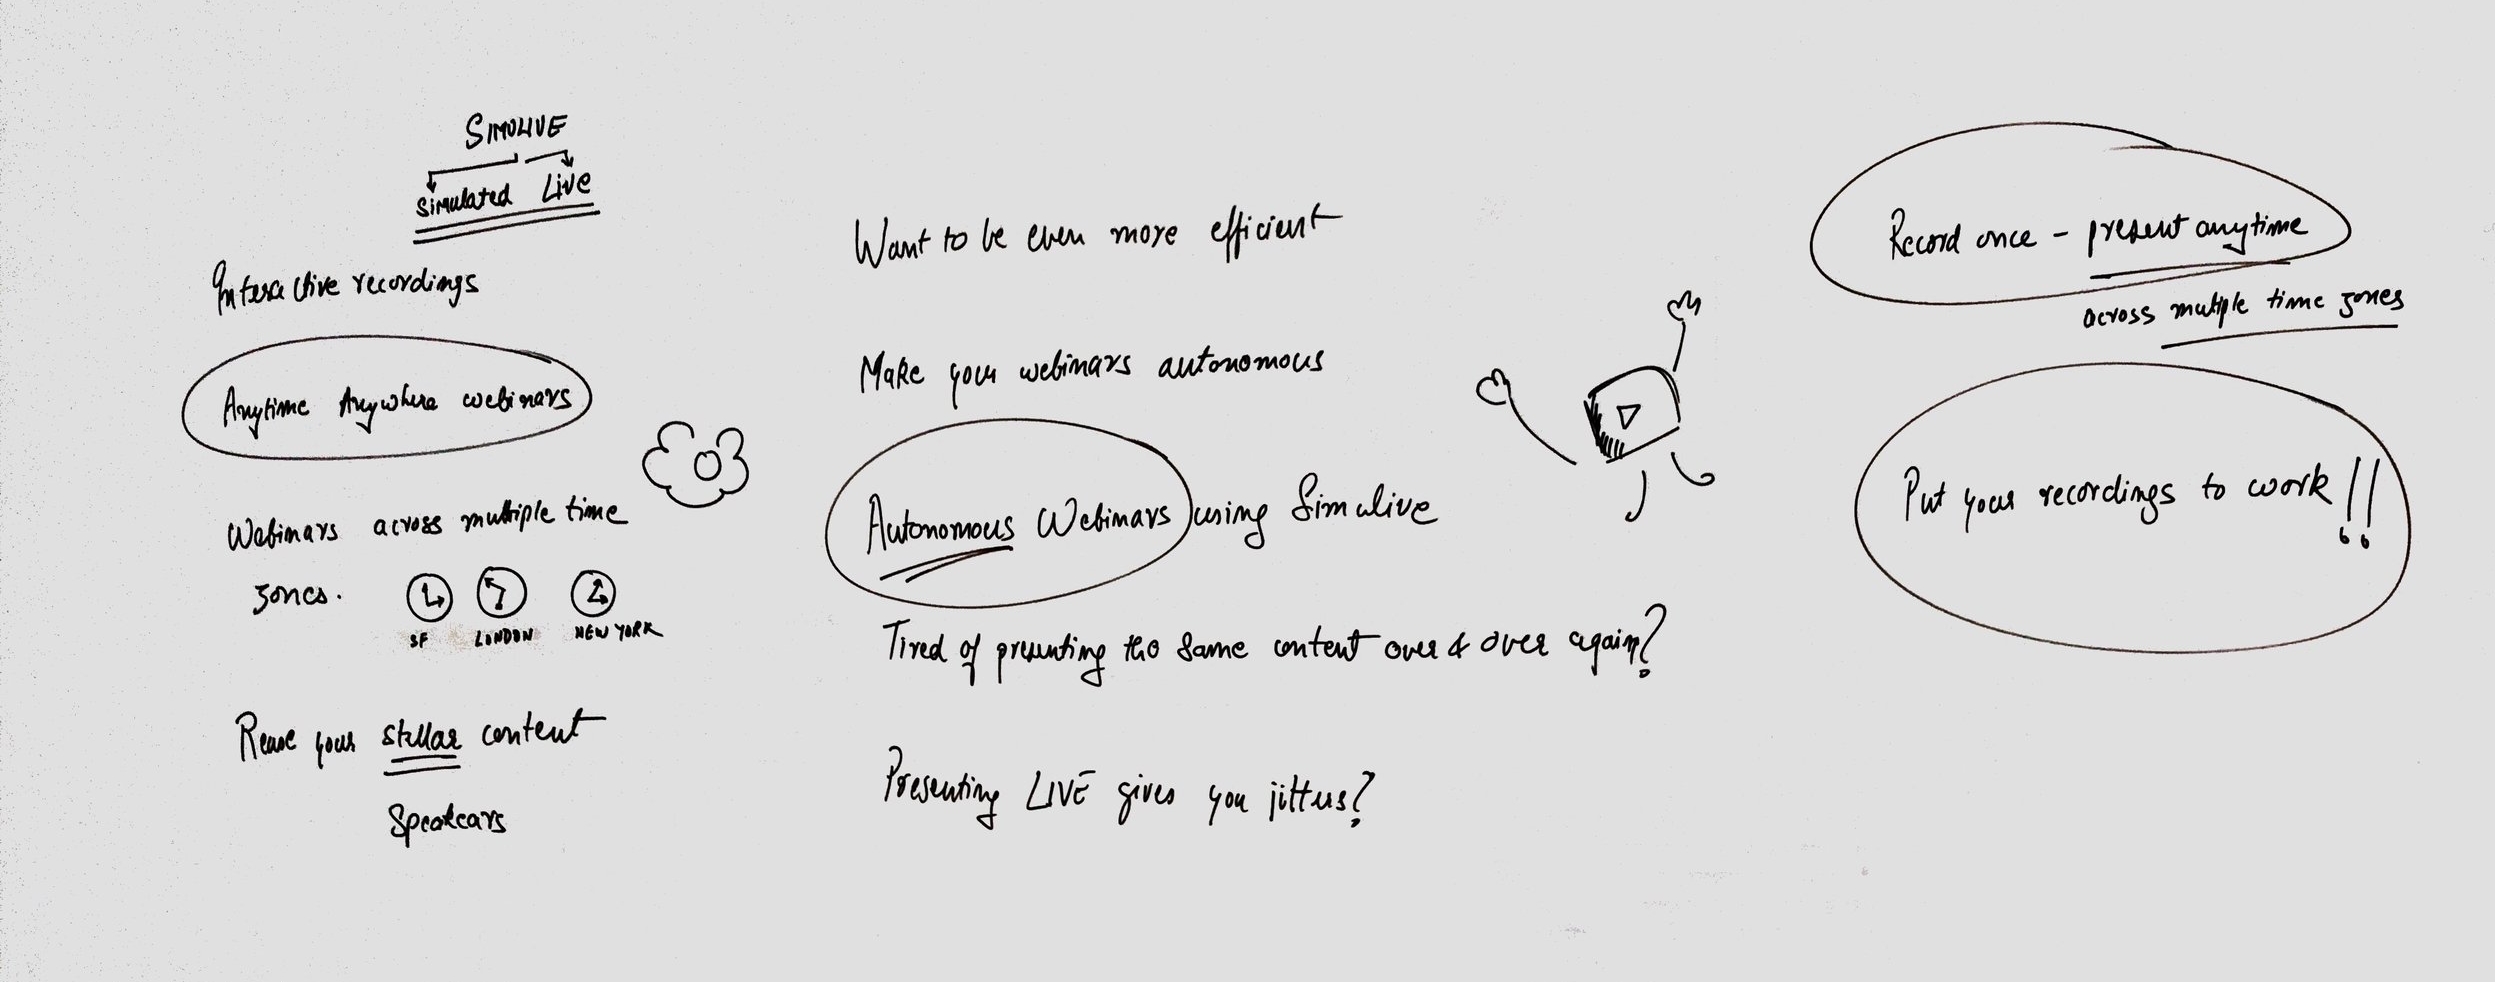 SIMULIVE
Simulated Live
Interactive recordings
Anytime Anywhere webinars
Webinars across multiple time
zones.
SF LONDON NEW YORK
Reuse your stellar content
Speakears
Want to be even more efficient
Make your webinars autonomous
Autonomous Webinars using Simulive
Tired of presenting the same content over & over again?
Presenting LIVE gives you jitters?
Record once - present anytime
across multiple time zones
Put your recordings to work!!